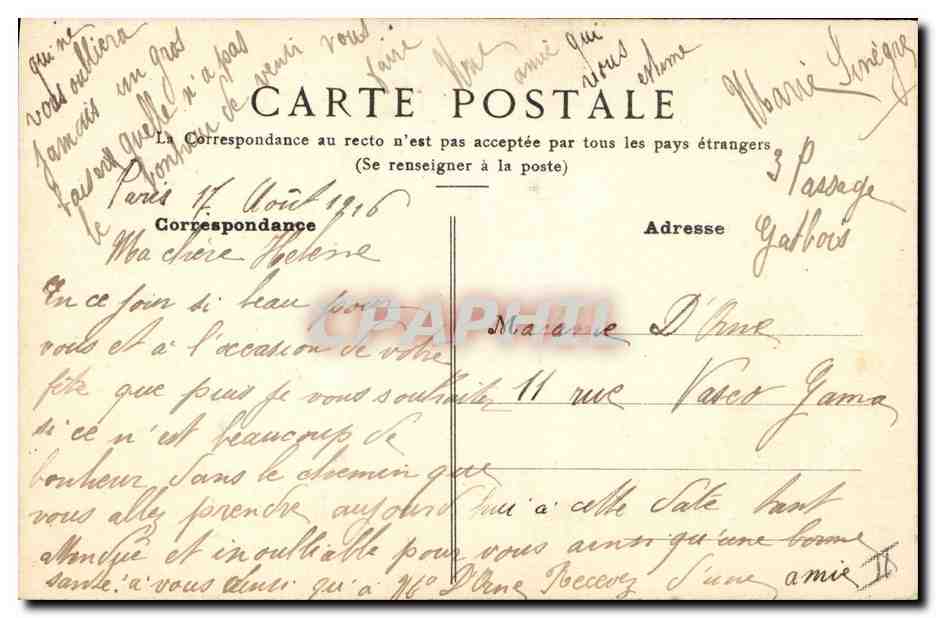 qui ne
vous oulliera
jamais un gros
baiser quelle n'a pas
le bonheur de venir vous
faire Une amie qui
vous estime
Marie
CARTE POSTALE
La Correspondance au recto n'est pas acceptée par tous les pays étrangers
(Se renseigner à la poste)
3 Passage
Gatbois
Paris 17 Août 1916
Correspondance
Adresse
Ma chère Helène
En ce jour si beau pour
vous et à l'occasion de votre
fête que puis je vous souhaiter
si ce n'est beaucoup de
bonheur dans le chemin que
vous allez prendre aujourd'hui à cette date tant
attendue et inoulliable pour vous ainsi qu'une bonne
santé à vous ainsi qu'à Mr D'Orne Recevez d'une amie
Madame D'Orne
11 rue Vasco Gama
CPAPHIL